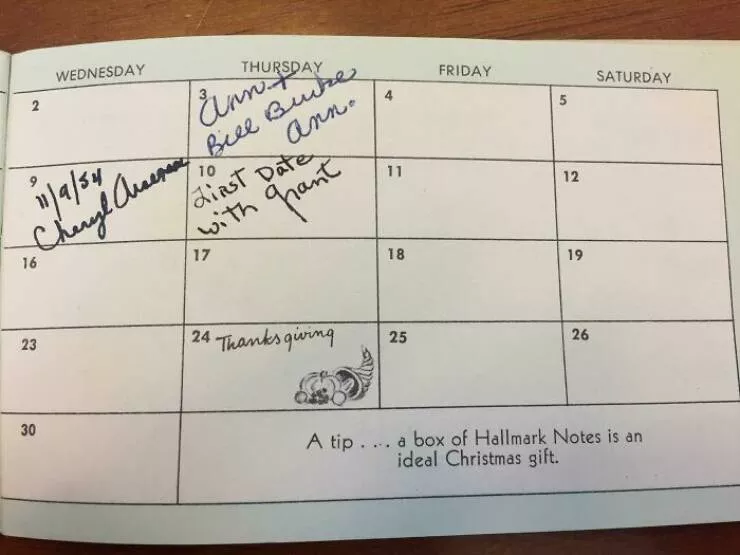 WEDNESDAY THURSDAY FRIDAY SATURDAY
2 3 4 5
Ann +
Bill Burke
Ann.
9 10 11 12
11/9/54
Cheryl
First Date
with Grant
16 17 18 19
23 24 Thanksgiving 25 26
30
A tip . . . . a box of Hallmark Notes is an
ideal Christmas gift.